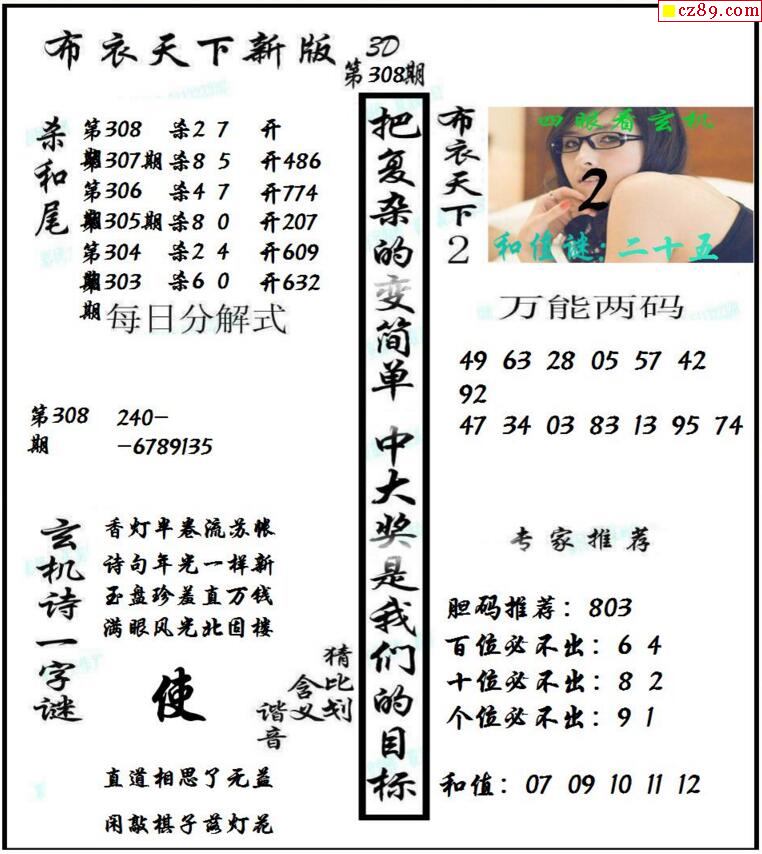 cz89.com
布衣天下新版
3D
第308期
杀和尾
第308期 杀2 7 开
第307期 杀8 5 开486
第306期 杀4 7 开774
第305期 杀8 0 开207
第304期 杀2 4 开609
第303期 杀6 0 开632
每日分解式
第308期 240-
-6789135
玄机诗一字谜
香灯半卷流苏帐
诗句年光一样新
玉盘珍羞直万钱
满眼风光北固楼
使
猜比划
含义
谐音
直道相思了无益
闲敲棋子落灯花
把复杂的变简单 中大奖是我们的目标
布衣天下2
四眼看玄机
2
和值谜:二十五
万能两码
49 63 28 05 57 42
92
47 34 03 83 13 95 74
专家推荐
胆码推荐：803
百位必不出：6 4
十位必不出：8 2
个位必不出：9 1
和值：07 09 10 11 12